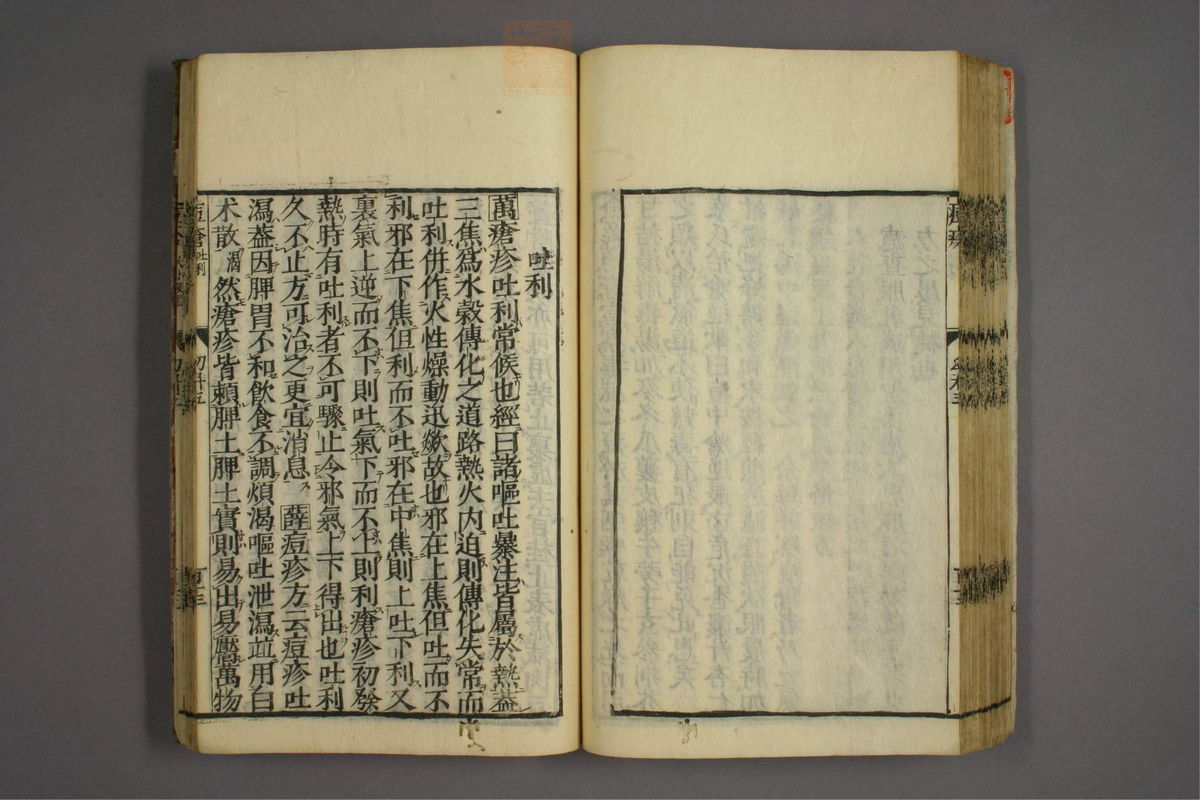 吐利
萬瘡疹吐利常候也經曰諸嘔吐暴注皆屬於熱葢
三焦爲水穀傳化之道路熱火内迫則傳化失常而
吐利併作火性燥動迅歘故也邪在上焦但吐而不
利邪在下焦但利而不吐邪在中焦則上吐下利又
裏氣上逆而不下則吐氣下而不上則利瘡疹初發
熱時有吐利者不可驟止令邪氣上下得出也吐利
久不止方可治之更宜消息 薛痘疹方云痘疹吐
瀉葢因脾胃不和飲食不調煩渴嘔吐泄瀉竝用白
术散 瀉 然瘡疹皆賴脾土脾土實則易出易靨萬物
痘瘡吐利
幼科五